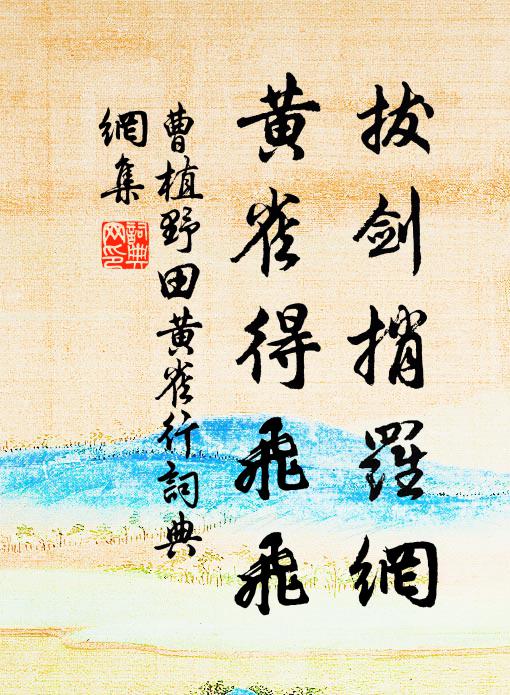 拔剑捎羅網
黃雀得飛飛
曹植野田黃雀行詞典
網集
詞典
网印